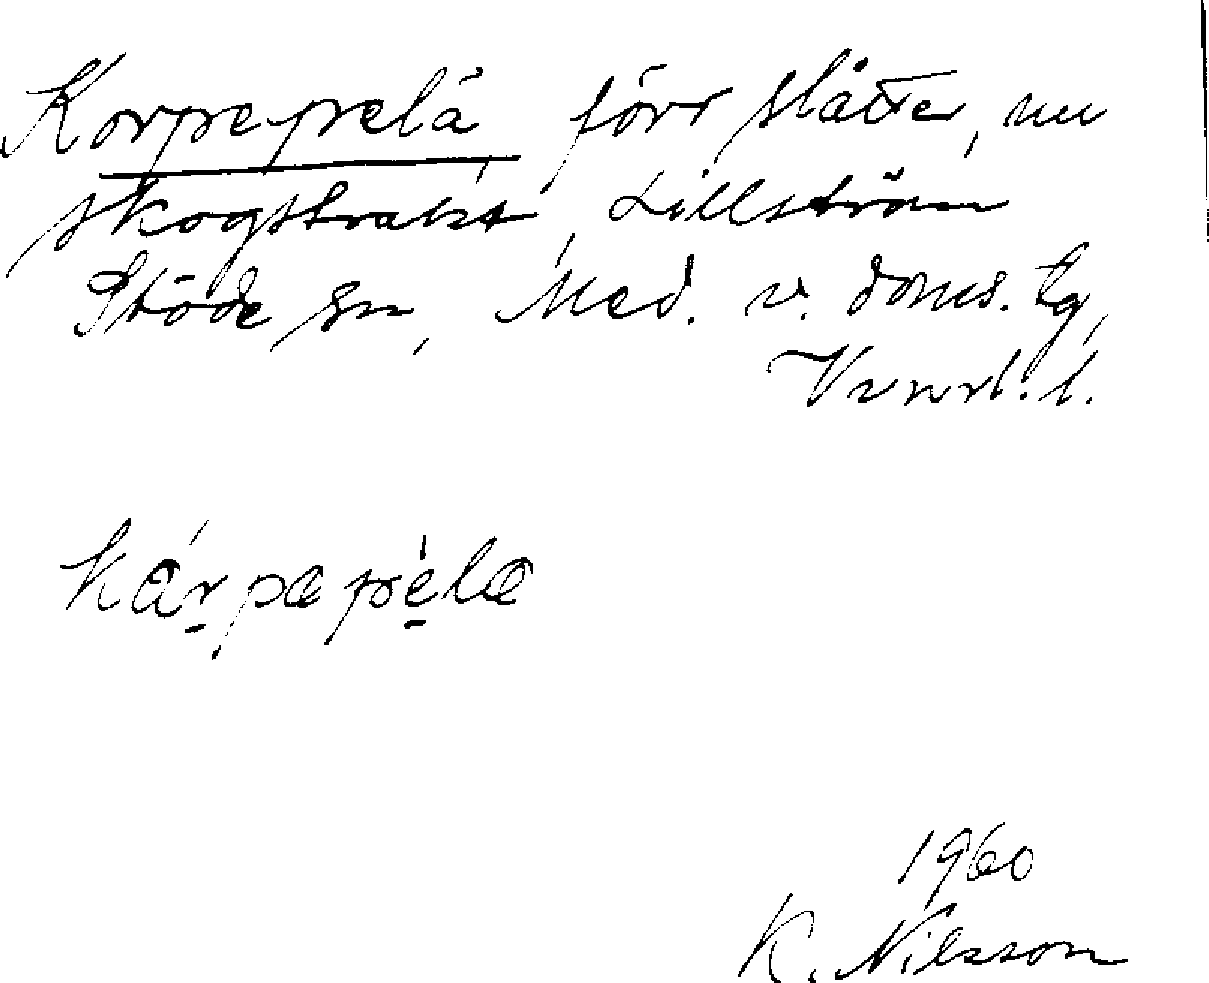 Korpepelä förr slåtter, nu
skogstrakt, Lillström
Stöde sn, Med. v. doms. tg,
Vnrl. l.
kárpapèla
1960
K. Nilsson